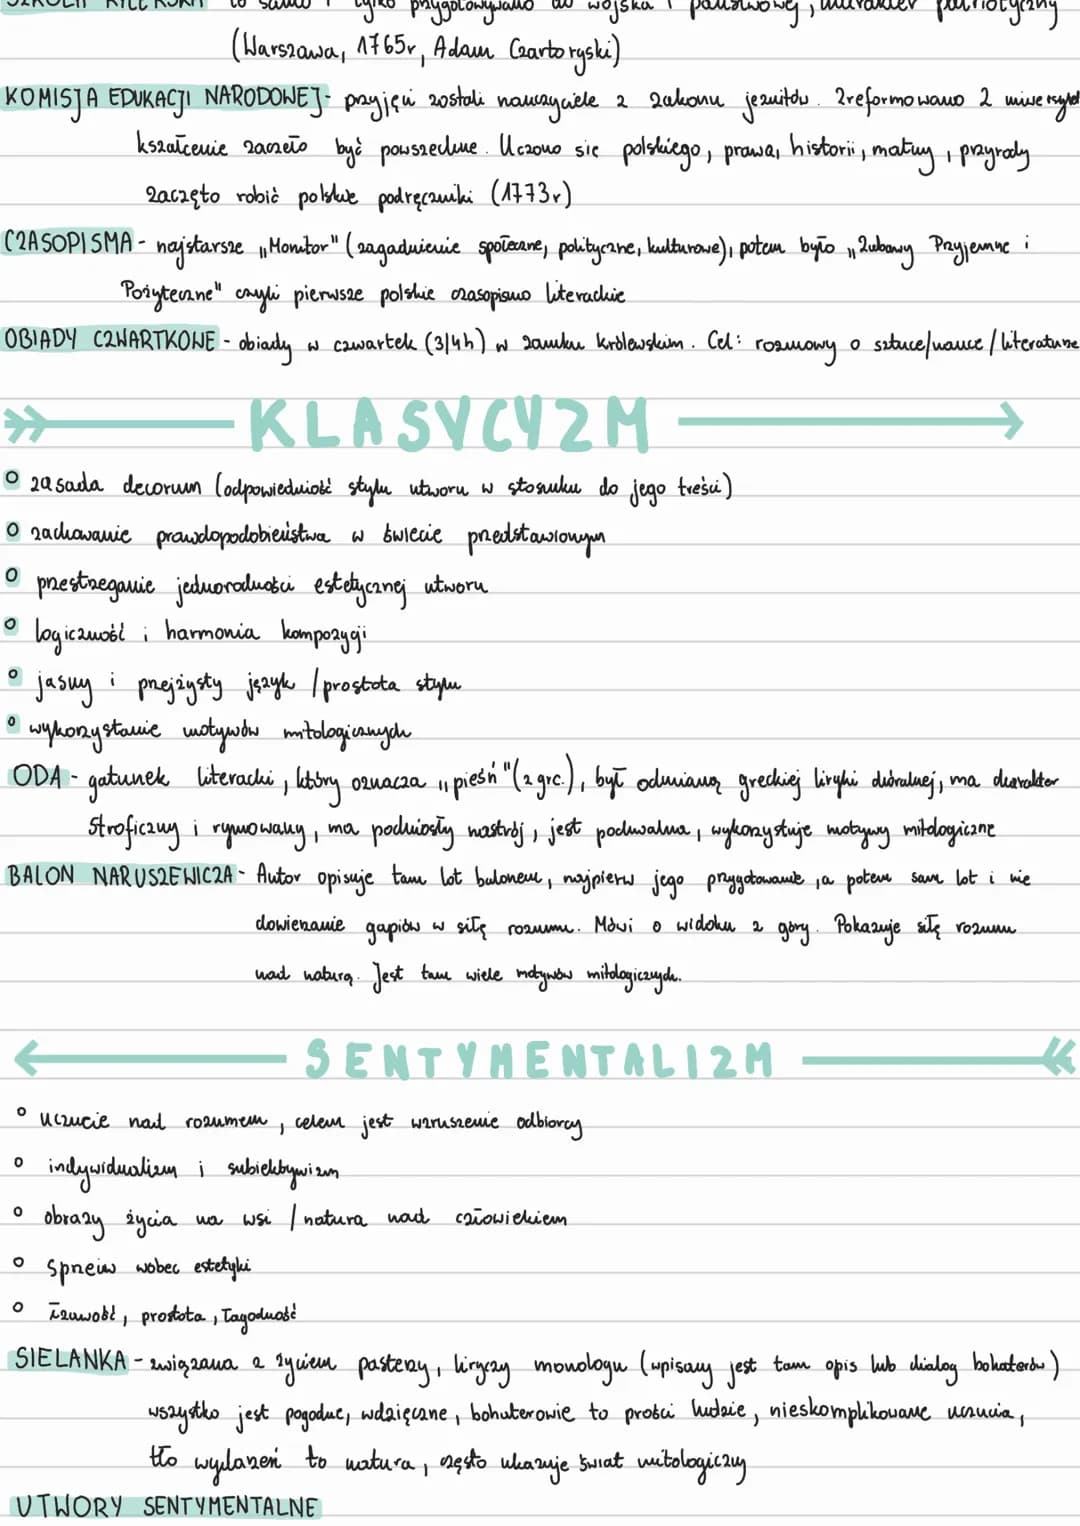 SZKOŁA RYCERSKA to samo i tylko przygotowywano do wojska i państwowej, charakter patriotyczny
(Warszawa, 1765r, Adam Czartoryski)
KOMISJA EDUKACJI NARODOWEJ- przyjęci zostali nauczyciele z zakonu jezuitów. Zreformowano 2 uniwersytety
kształcenie zaczeło być powszechne. Uczono sie polskiego, prawa, historii, matmy, przyrody
zaczęto robić polskie podręczniki (1773r)
CZASOPISMA - najstarsze „Monitor" (zagadnienie społeczne, polityczne, kulturowe), potem było „Zabawy Przyjemne i
Pożyteczne" czyli pierwsze polskie czasopismo literackie
OBIADY CZWARTKOWE - obiady w czwartek (3/4h) w zamku królewskim. Cel: rozmowy o sztuce/nauce/literaturze
KLASYCYZM
zasada decorum (odpowiedniość stylu utworu w stosunku do jego treści)
zachowanie prawdopodobieństwa w świecie przedstawionym
przestrzeganie jednorodności estetycznej utworu
logiczność i harmonia kompozycji
jasny i przejżysty język /prostota stylu
wykorzystanie motywów mitologicznych
ODA - gatunek literacki, który oznacza „pieśń"(z grc.), był odmianą greckiej liryki chóralnej, ma charakter
stroficzny i rymowany, ma podniosły nastrój, jest pochwalna, wykorzystuje motywy mitologiczne
BALON NARUSZEWICZA- Autor opisuje tam lot balonem, najpierw jego przygotowanie, a potem sam lot i nie
dowierzanie gapiów w siłę rozumu. Mówi o widoku z góry. Pokazuje siłę rozumu
nad naturą. Jest tam wiele motywów mitologicznych.
SENTYMENTALIZM
uczucie nad rozumem, celem jest wzruszenie odbiorcy
indywidualizm i subiektywizm
obrazy życia na wsi / natura nad człowiekiem
Sprzeiw wobec estetyki
łzawość, prostota, łagodność
SIELANKA - związana z życiem pasterzy, liryczy monologu (wpisany jest tam opis lub dialog bohaterów)
wszystko jest pogodne, wdzięczne, bohaterowie to prości ludzie, nieskomplikowane uczucia,
tło wydarzeń to natura, często ukazuje świat mitologiczny
UTWORY SENTYMENTALNE